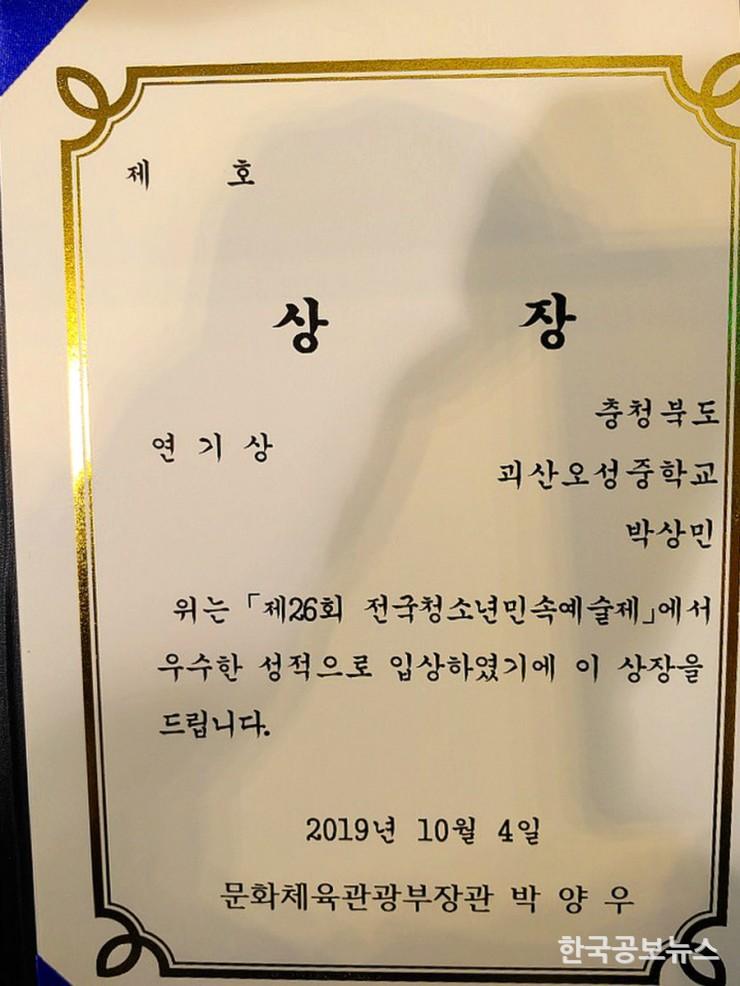 제 호
상 장
충청북도
연 기 상
괴산오성중학교
박상민
위는 「제26회 전국청소년민속예술제」에서
우수한 성적으로 입상하였기에 이 상장을
드립니다.
2019년 10월 4일
문화체육관광부장관 박 양 우
한국공보뉴스